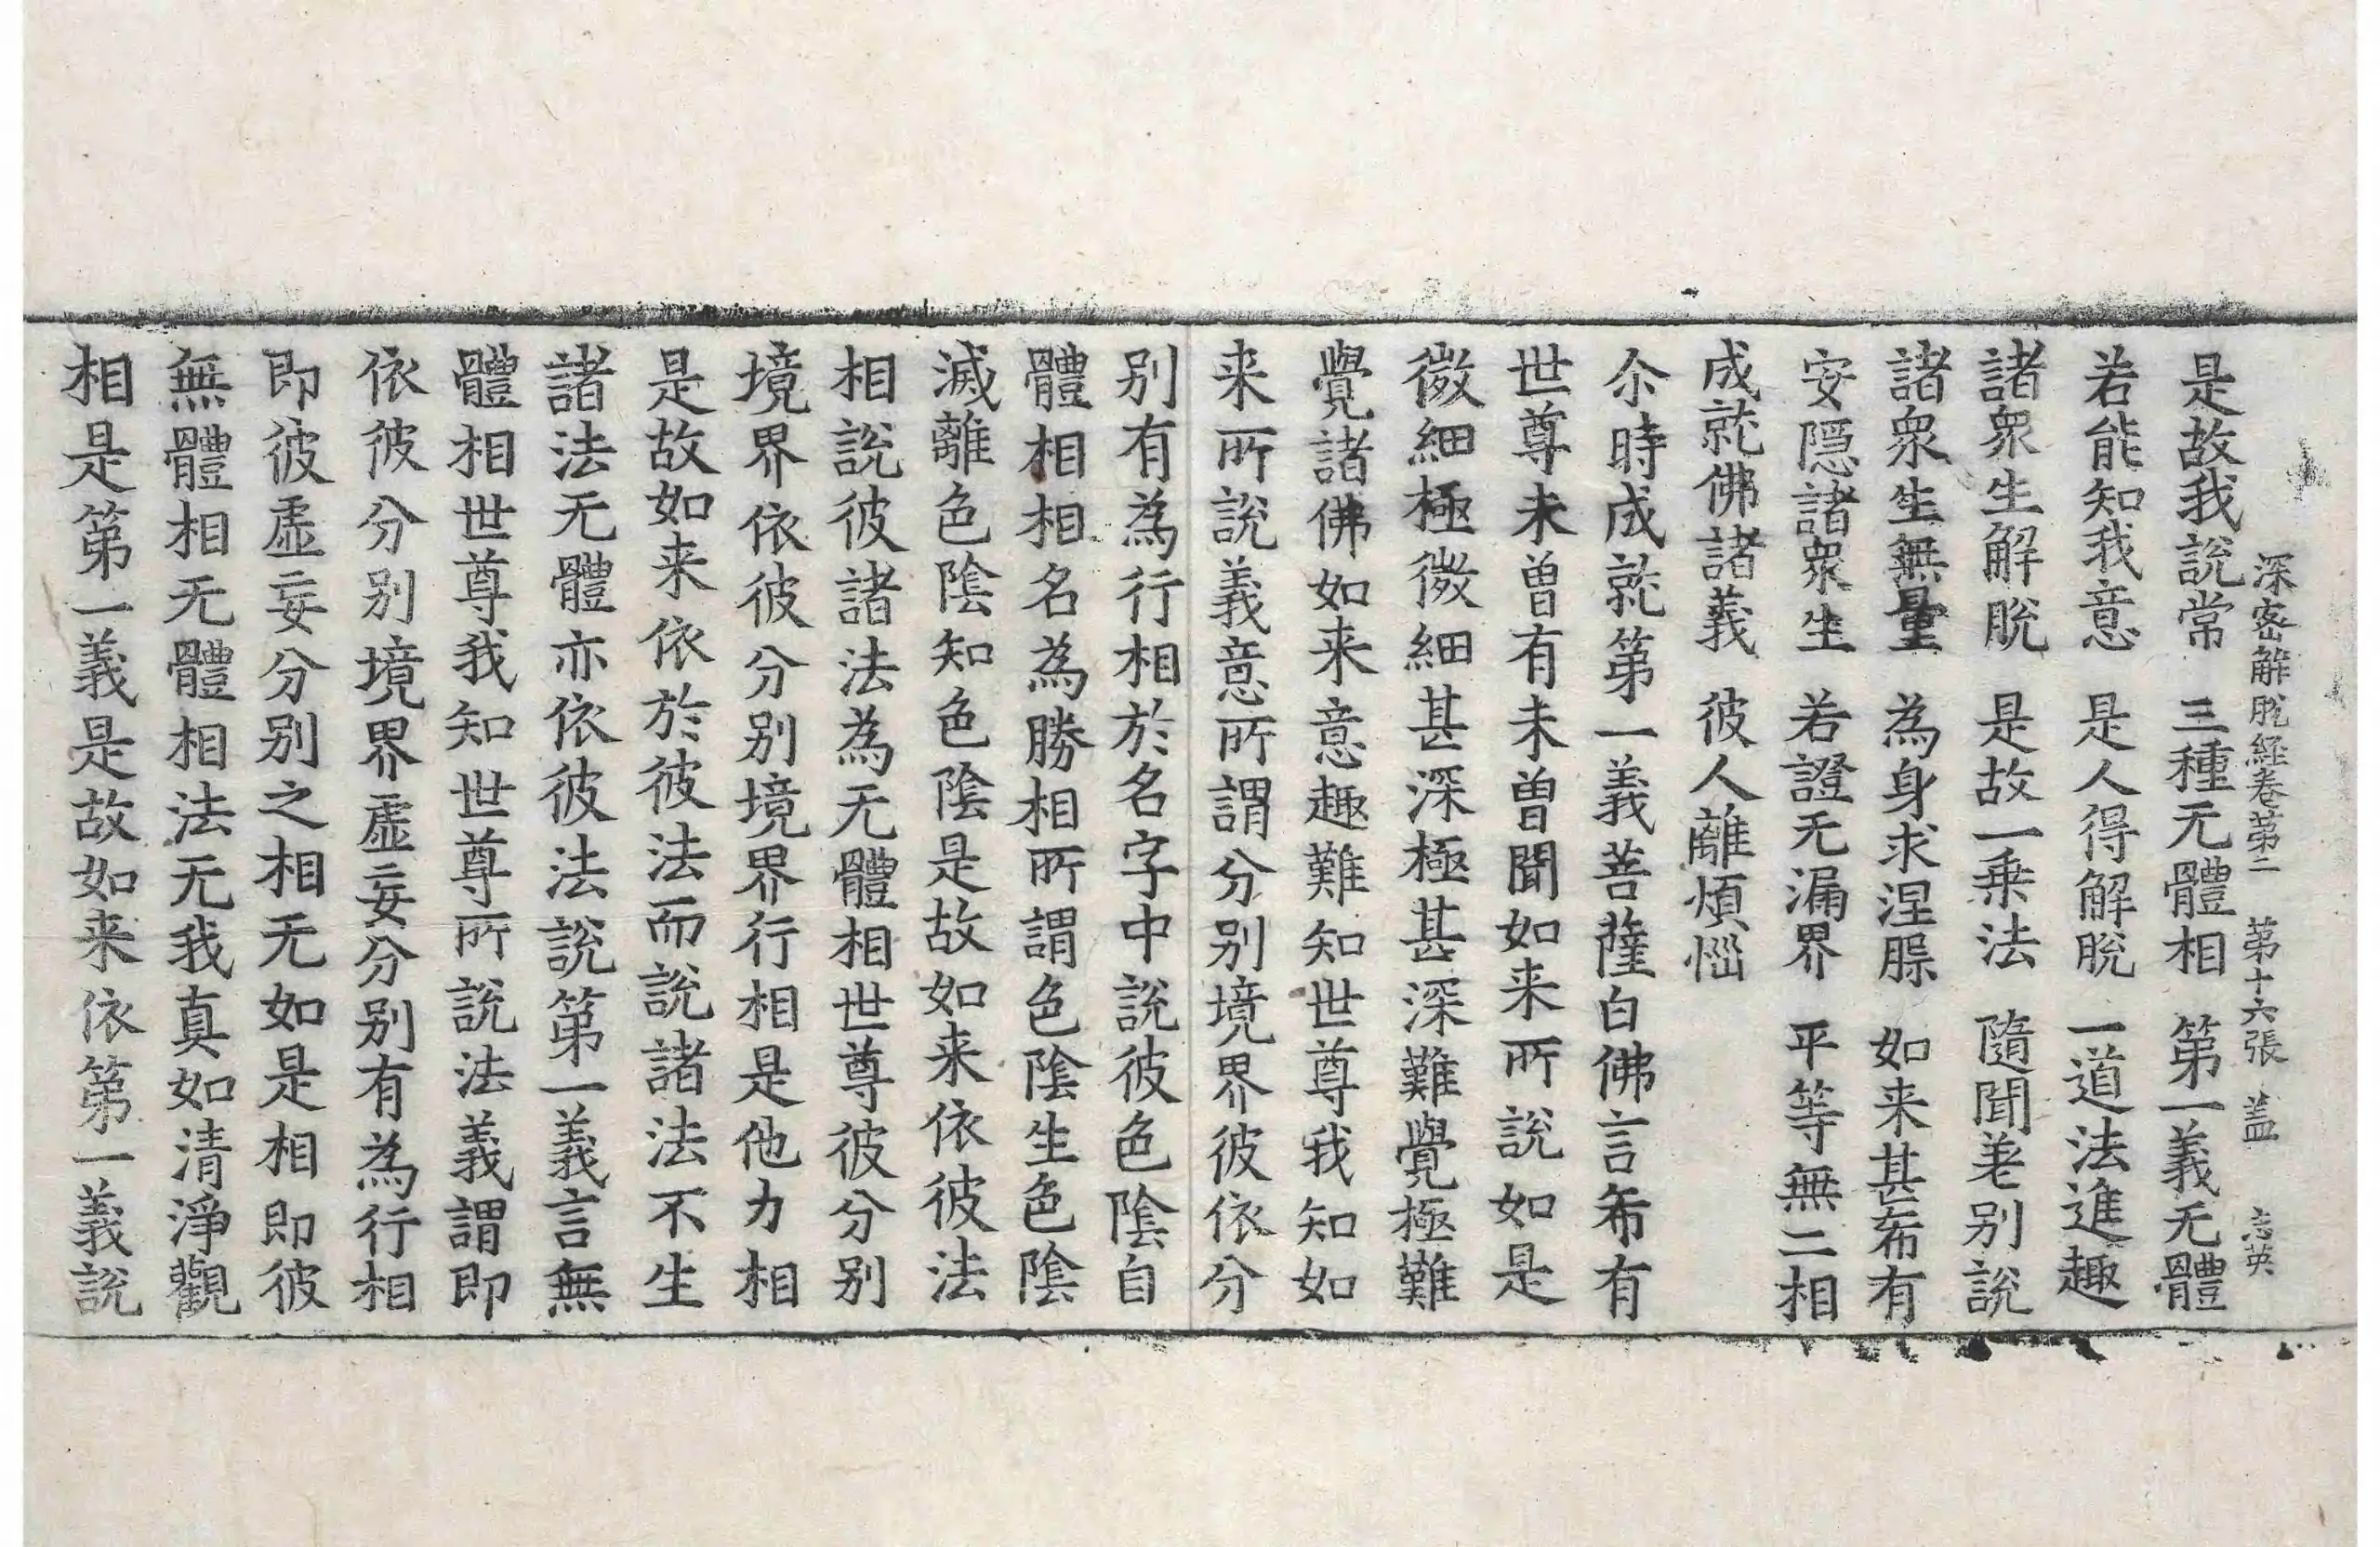 深密解脫經卷第二　第十六張　盖　志英
是故我說常　三種无體相　第一義无體
若能知我意　是人得解脫　一道法進趣
諸衆生解脫　是故一乗法　隨聞差别說
諸衆生無量　為身求涅槃　如来甚希有
安隱諸衆生　若證无漏界　平等無二相
成就佛諸義　彼人離煩惱
尒時成就第一義菩薩白佛言希有
世尊未曽有未曽聞如来所說如是
微細極微細甚深極甚深難覺極難
覺諸佛如来意趣難知世尊我知如
来所說義意所謂分别境界彼依分
别有為行相於名字中說彼色陰自
體相相名為勝相所謂色陰生色陰
滅離色陰知色陰是故如来依彼法
相說彼諸法為无體相世尊彼分别
境界依彼分别境界行相是他力相
是故如来依於彼法而說諸法不生
諸法无體亦依彼法說第一義言無
體相世尊我知世尊所說法義謂即
依彼分别境界虛妄分别有為行相
即彼虛妄分别之相无如是相即彼
無體相无體相法无我真如清淨觀
相是第一義是故如来依第一義說